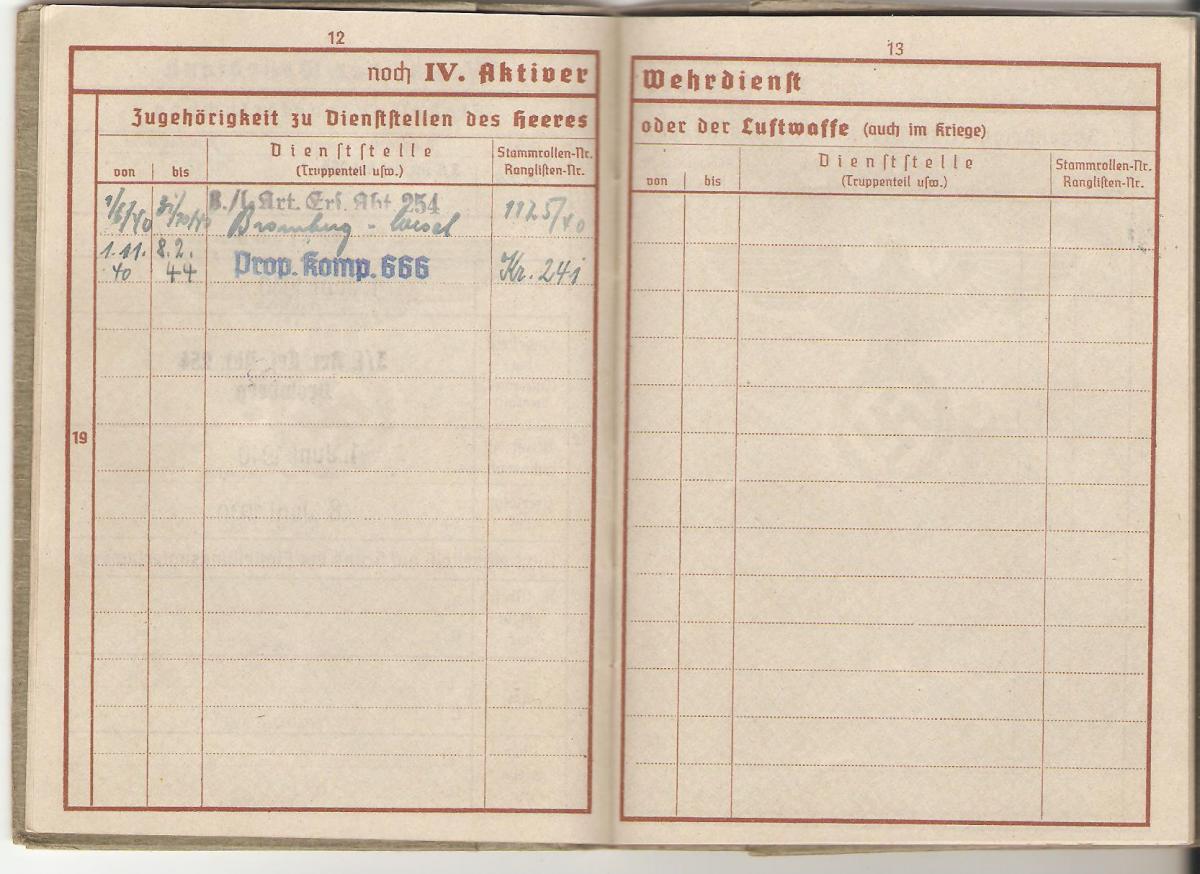 12
noch IV. Aktiver
Zugehörigkeit zu Dienststellen des Heeres
von
bis
Dienststelle
(Truppenteil usw.)
Stammrollen-Nr.
Ranglisten-Nr.
Art. Ers. Abt 254
Bromberg - Wesel
1125/40
1.11.40
8.2.44
Prop. Komp. 666
Kr. 241
19
13
Wehrdienst
oder der Luftwaffe (auch im Kriege)
von
bis
Dienststelle
(Truppenteil usw.)
Stammrollen-Nr.
Ranglisten-Nr.